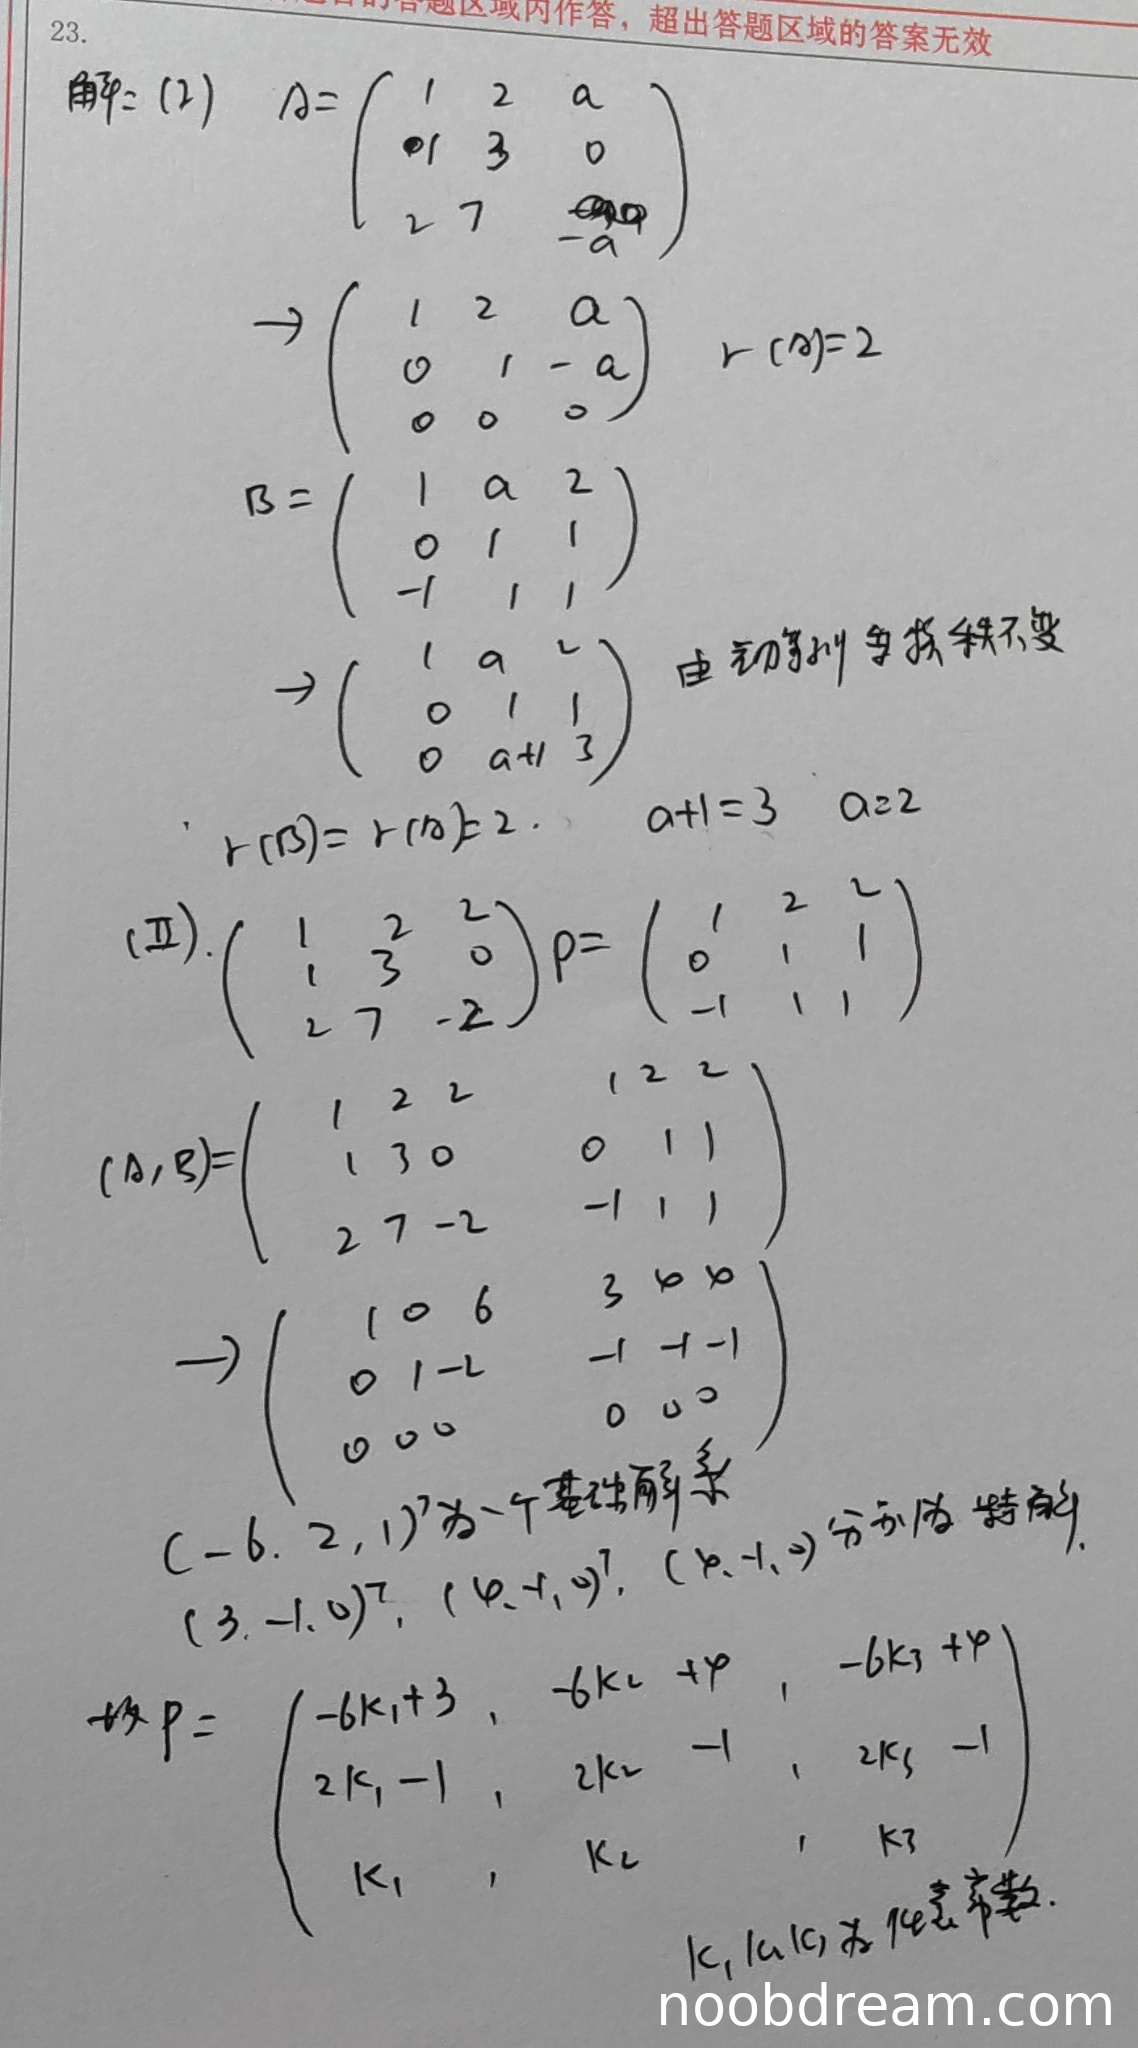 的答题区域内作答，超出答题区域的答案无效
23.
解：(1) A = ( 1 2 a
1 3 0
2 7 -a )
→ ( 1 2 a
0 1 -a
0 0 0 ) r(A)=2
B = ( 1 a 2
0 1 1
-1 1 1 )
→ ( 1 a 2
0 1 1
0 a+1 3 ) 由初等列变换秩不变
r(B)=r(A)=2. a+1=3 a=2
(Ⅱ). ( 1 2 2
1 3 0
2 7 -2 ) P= ( 1 2 2
0 1 1
-1 1 1 )
(A,B)= ( 1 2 2 1 2 2
1 3 0 0 1 1
2 7 -2 -1 1 1 )
→ ( 1 0 6 3 4 4
0 1 -2 -1 -1 -1
0 0 0 0 0 0 )
(-6. 2, 1)ᵀ为一个基础解系
(3. -1. 0)ᵀ, (4. -1, 0)ᵀ, (4. -1. 0) 分别为 特解.
故 P = ( -6k₁+3 , -6k₂+4 , -6k₃+4
2k₁-1 , 2k₂-1 , 2k₃-1
k₁ , k₂ , k₃ )
k₁ k₂ k₃ 为任意常数.
noobdream.com